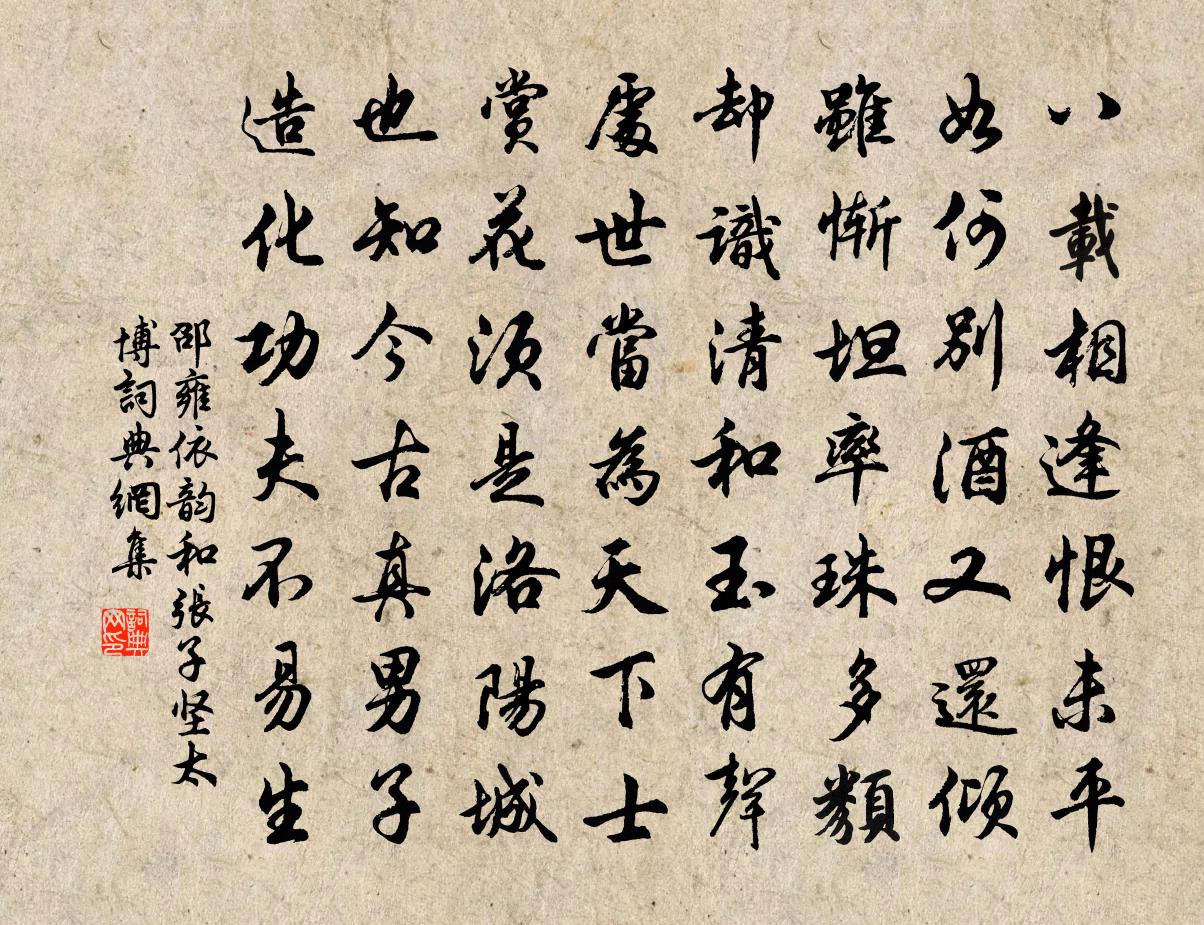 八載相逢恨未平
如何別酒又還傾
雖慚坦率珠多纇
却識清和玉有聲
處世當為天下士
賞花須是洛陽城
也知今古真男子
造化功夫不易生
邵雍依韵和張子坚太
博詞典網集
詞典
网印